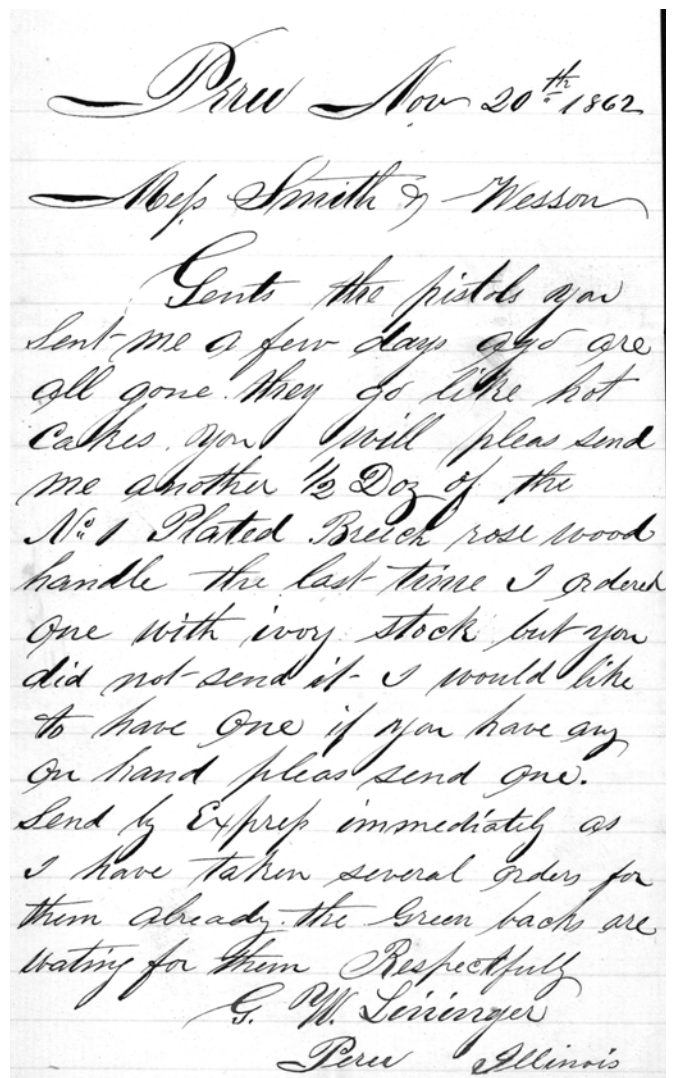 Peru Nov 20th 1862
Mess Smith & Wesson
Gents the pistols you
sent me a few days ago are
all gone. they go like hot
cakes. you will pleas send
me another 1/2 Doz of the
No 1 Plated Breech rose wood
handle the last time I ordered
one with ivory stock but you
did not send it I would like
to have one if you have any
on hand pleas send one.
Send by Express immediately as
I have taken several orders for
them already. the Green backs are
wating for them Respectfully
G. W. Lininger
Peru Illinois